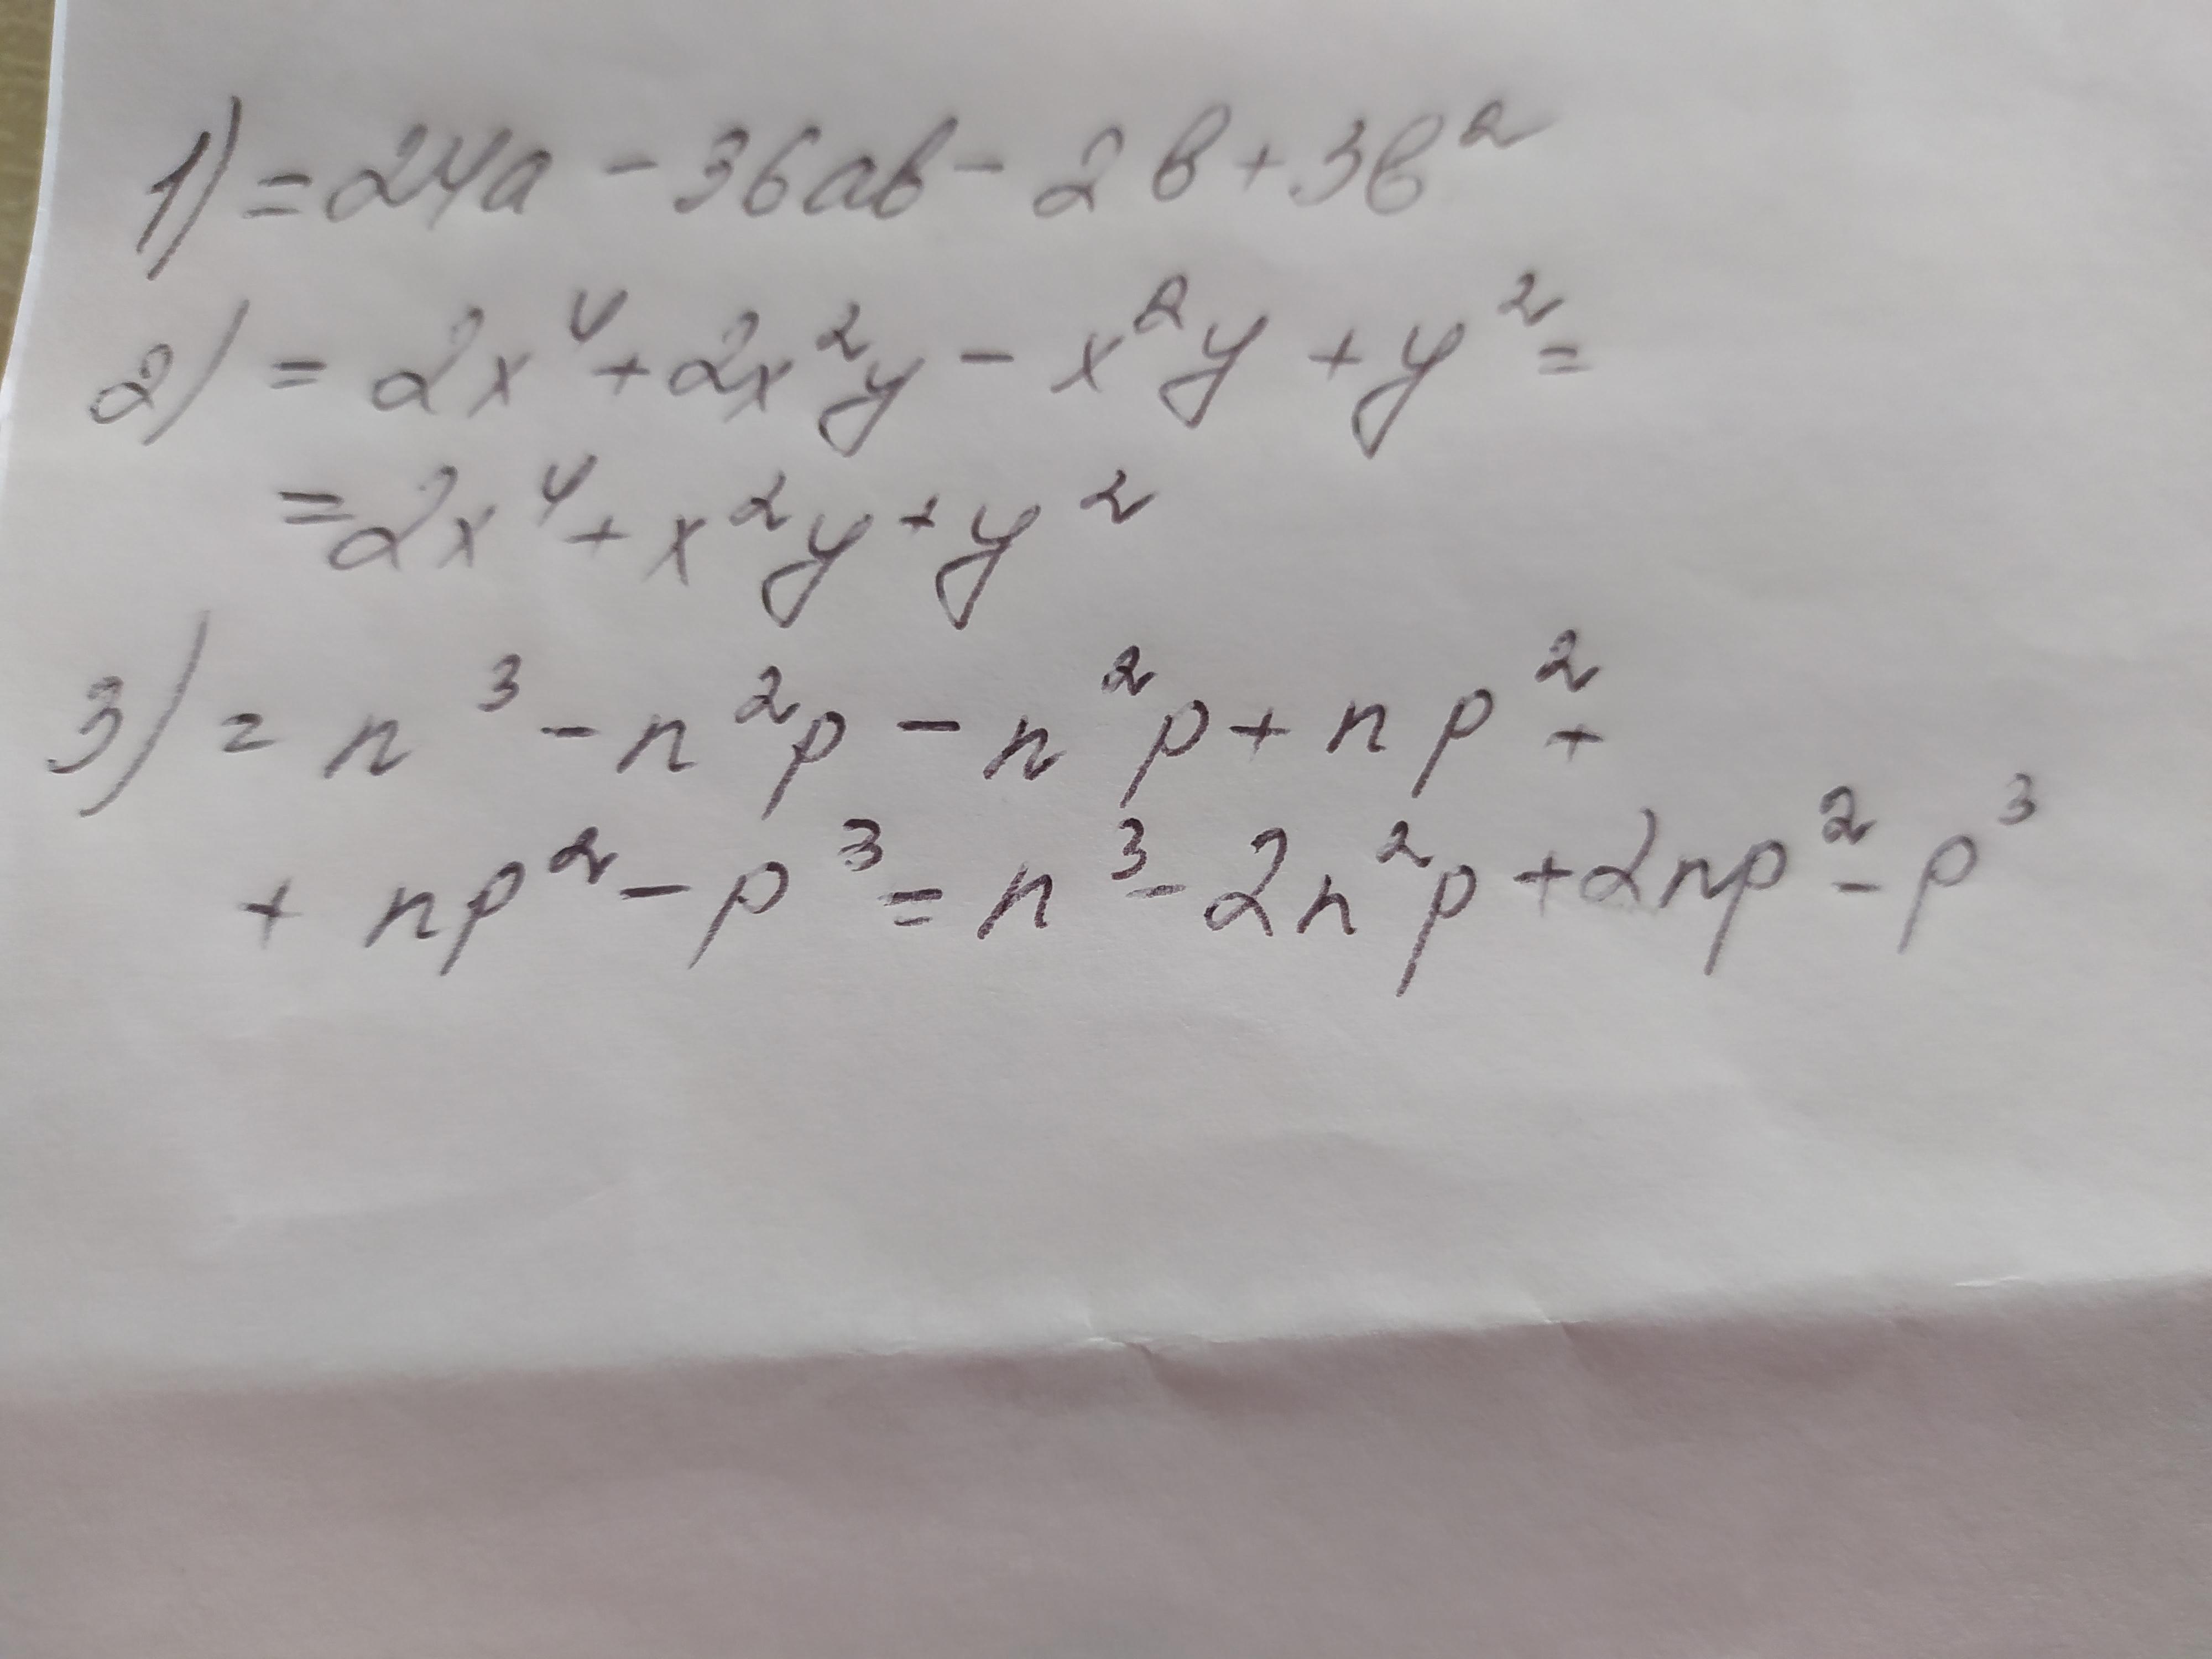 1) = 24a - 36ab - 2b + 3b²
2) = 2x⁴ + 2x²y - x²y + y² =
= 2x⁴ + x²y + y²
3) = n³ - n²p - n²p + np² +
+ np² - p³ = n³ - 2n²p + 2np² - p³